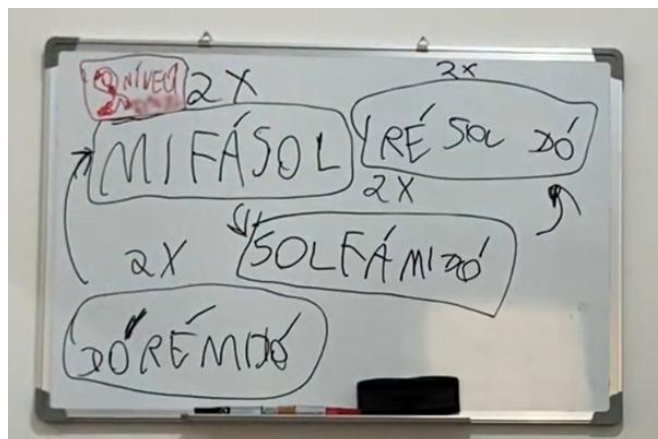 2 NÍVEL
2X
MI FÁ SOL
2X
RÉ SOL DÓ
2X
SOL FÁ MI DÓ
2X
DÓ RÉ MI DÓ